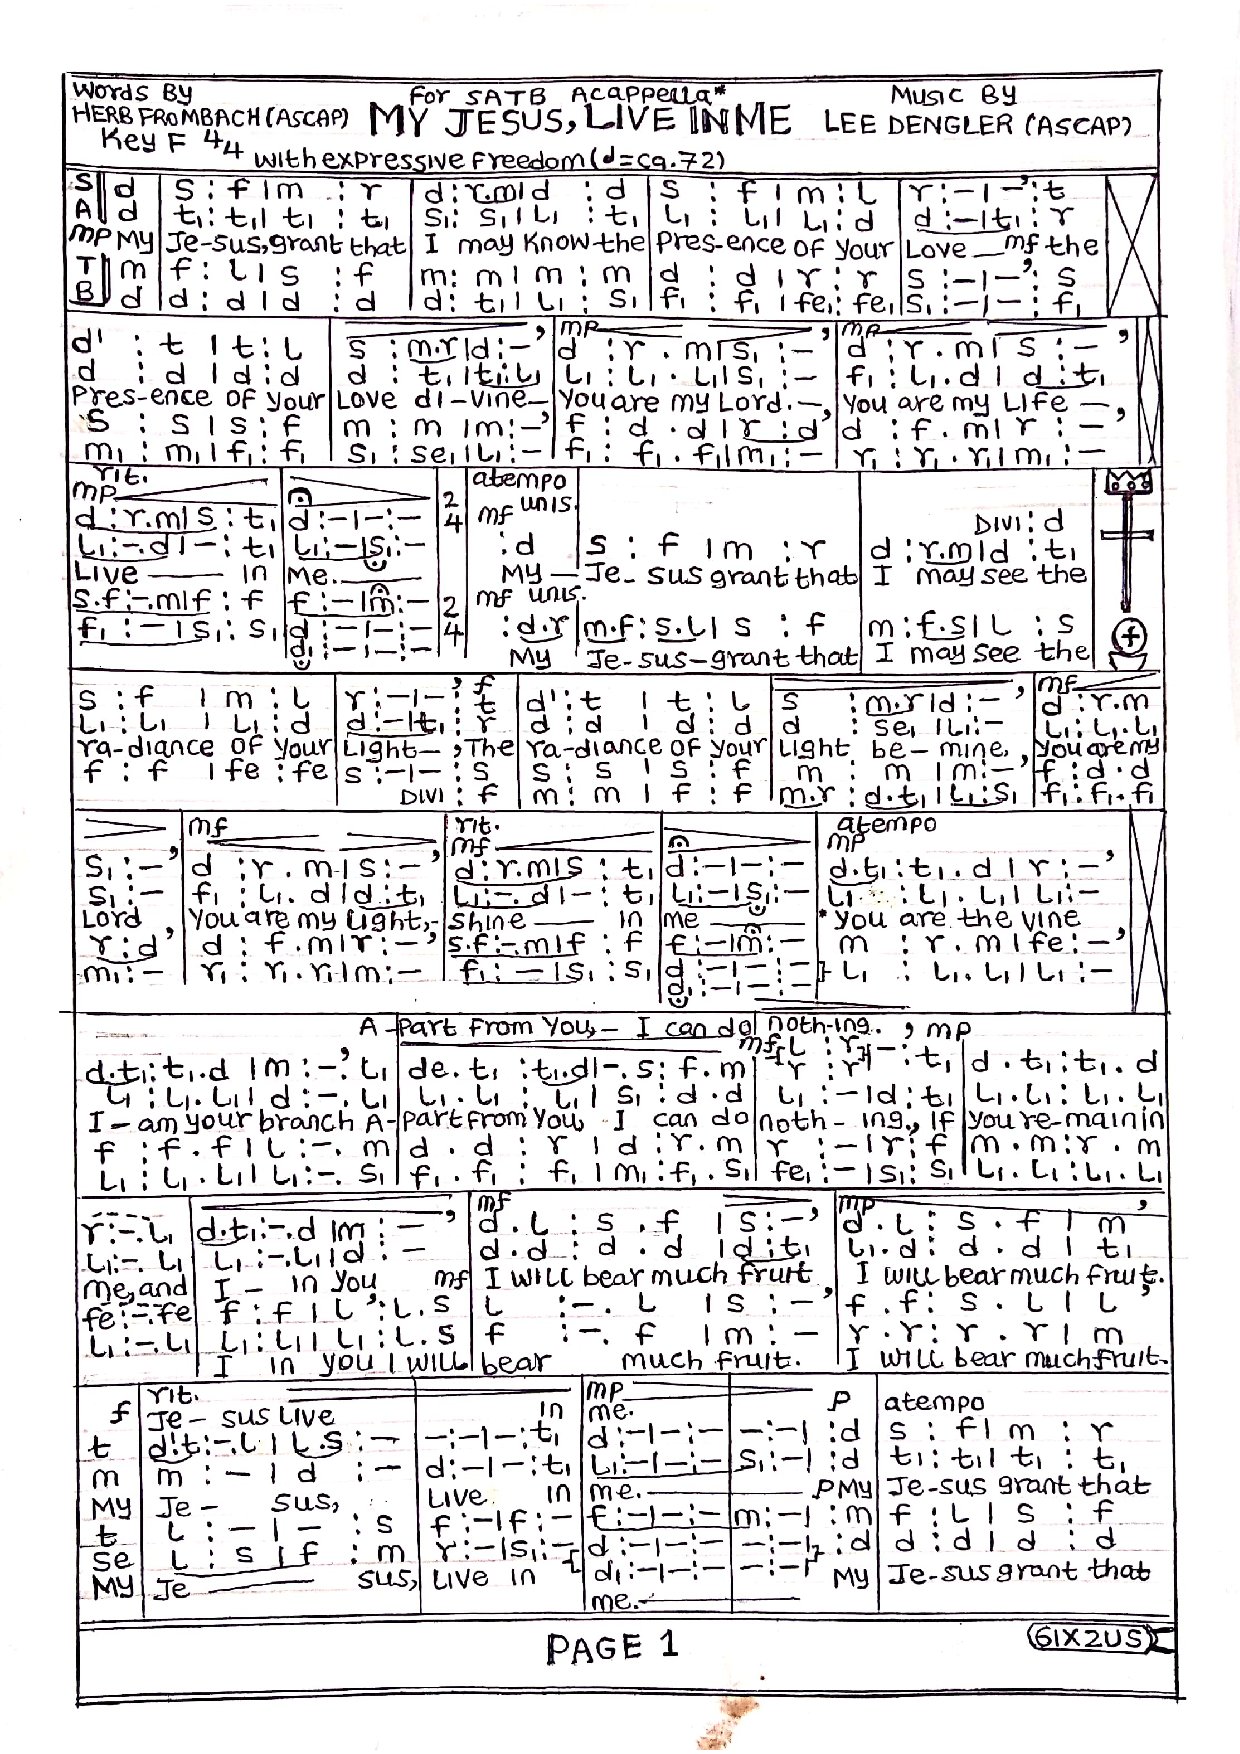 Words By
For SATB Acappella*
Music By
HERB FROMBACH (ASCAP) MY JESUS, LIVE IN ME LEE DENGLER (ASCAP)
Key F 4/4
with expressive freedom (d=ca.72)
S d | s : f | m : r | d : r.m | d : d | s : f | m : L | r : - | - ,: t
A d | t₁ : t₁ | t₁ : t₁ | s₁ : s₁ | L₁ : t₁ | L₁ : L₁ | L₁ : d | d : - | t₁ : r
mp My Je-sus, grant that I may know the Pres-ence of your Love — mf the
T m | f : L | s : f | m : m | m : m | d : d | r : r | s : - | - ,: s
B d | d : d | d : d | d : t₁ | L₁ : s₁ | f₁ : f₁ | fe₁ : fe₁ | s₁ : - | - : f₁
mp mp
d' : t | t : L | s : m.r | d : - , | d : r . m | s₁ : - , | d : r . m | s : - ,
d : d | d : d | d : t₁ | t₁ : L₁ | L₁ : L₁ . L₁ | s₁ : - | f₁ : L₁ . d | d : t₁
Pres-ence of your Love di-vine— You are my Lord.—, You are my Life —,
s : s | s : f | m : m | m : - , | f : d . d | r : d | d : f . m | r : -
m₁ : m₁ | f₁ : f₁ | s₁ : se₁ | L₁ : - | f₁ : f₁ . f₁ | m₁ : - | r₁ : r₁ . r₁ | m₁ : -
rit. atempo
mp 2/4 mf unis.
d : r.m | s : t₁ | d : - | - : - DIVI : d
L₁ : -.d | - : t₁ | L₁ : - | s₁ : - : d | s : f | m : r | d : r.m | d : t₁
Live —— in Me. —— My — Je- sus grant that I may see the
s.f : -.m | f : f | f : - | m : - 2/4 mf unis.
f₁ : - | s₁ : s₁ | d : - | - : - : d.r | m.f : s.L | s : f | m : f.s | L : s
d₁ : - | - : - My Je-sus-grant that I may see the
f mf
s : f | m : L | r : - | - ,: t | d' : t | t : L | s : m.r | d : - , | d : r.m
L₁ : L₁ | L₁ : d | d : - | t₁ : r | d : d | d : d | d : se₁ | L₁ : - | L₁ : L₁.L₁
ra-diance of your Light—, The ra-diance of your Light be-mine, You are my
f : f | fe : fe | s : - | - : s | s : s | s : f | m : m | m : - , | f : d . d
DIVI : f | m : m | f : f | m.r : d.t₁ | L₁ : s₁ | f₁ : f₁ . f₁
mf rit. atempo
mf mp
s₁ : - , | d : r . m | s : - , | d : r.m | s : t₁ | d : - | - : - | d.t₁ : t₁ . d | r : - ,
s₁ : - | f₁ : L₁ . d | d : t₁ | L₁ : -. d | - : t₁ | L₁ : - | s₁ : - | L₁ : L₁ . L₁ | L₁ : -
Lord , You are my Light,- Shine —— in me —— *You are the vine
r : d | d : f . m | r : - , | s.f : -.m | f : f | f : - | m : - | m : r . m | fe : - ,
m₁ : - | r₁ : r₁ . r₁ | m₁ : - | f₁ : - | s₁ : s₁ | d : - | - : - } L₁ : L₁ . L₁ | L₁ : -
d₁ : - | - : -
A-part from You,- I can do noth-ing. , mp
mf
d.t₁ : t₁ . d | m : - ,. L₁ | de . t₁ : t₁.d | -. s : f . m | r : r | - : t₁ | d . t₁ : t₁ . d
L₁ : L₁ . L₁ | d : -. L₁ | L₁ . L₁ : L₁ | s₁ : d . d | L₁ : - | d : t₁ | L₁ . L₁ : L₁ . L₁
I - am your branch A-part from You, I can do noth- ing., If you re-main in
f : f . f | L : -. m | d . d : r | d : r . m | r : - | r : f | m . m : r . m
L₁ : L₁ . L₁ | L₁ : -. s₁ | f₁ . f₁ : f₁ | m₁ : f₁ . s₁ | fe₁ : - | s₁ : s₁ | L₁ . L₁ : L₁ . L₁
mf mp
r : -. L₁ | d.t₁ : -.d | m : - , | d . L : s . f | s : - , | d . L : s . f | m ,
L₁ : -. L₁ | L₁ : -.L₁ | d : - | d . d : d . d | d : t₁ | L₁ . d : d . d | t₁
me, and I - in you mf I will bear much fruit , I will bear much fruit.
fe : -.fe | f : f | L ,: L.s | L : -. L | s : - , | f . f : s . L | L ,
L₁ : -. L₁ | L₁ : L₁ | L₁ : L.s | f : -. f | m : - | r . r : r . r | m
I in you I will bear much fruit. I will bear much fruit.
rit. mp
f Je- sus Live in me. P atempo
t | d'.t : -.L | L.s : - | - : - | - : t₁ | d : - | - : - | - : - | : d | s : f | m : r
m | m : - | d : - | d : - | - : t₁ | L₁ : - | - : - | s₁ : - | : d | t₁ : t₁ | t₁ : t₁
My Je- sus, Live in me. —— P My Je-sus grant that
t | L : - | - : s | f : - | f : - | f : - | - : - | m : - | : m | f : L | s : f
se | L : s | f : m | r : - | s₁ : - | d : - | - : - | - : - | : d | d : d | d : d
My Je —— sus, Live in d₁ : - | - : - | - : - | My Je-sus grant that
me. ——
PAGE 1
61X2US